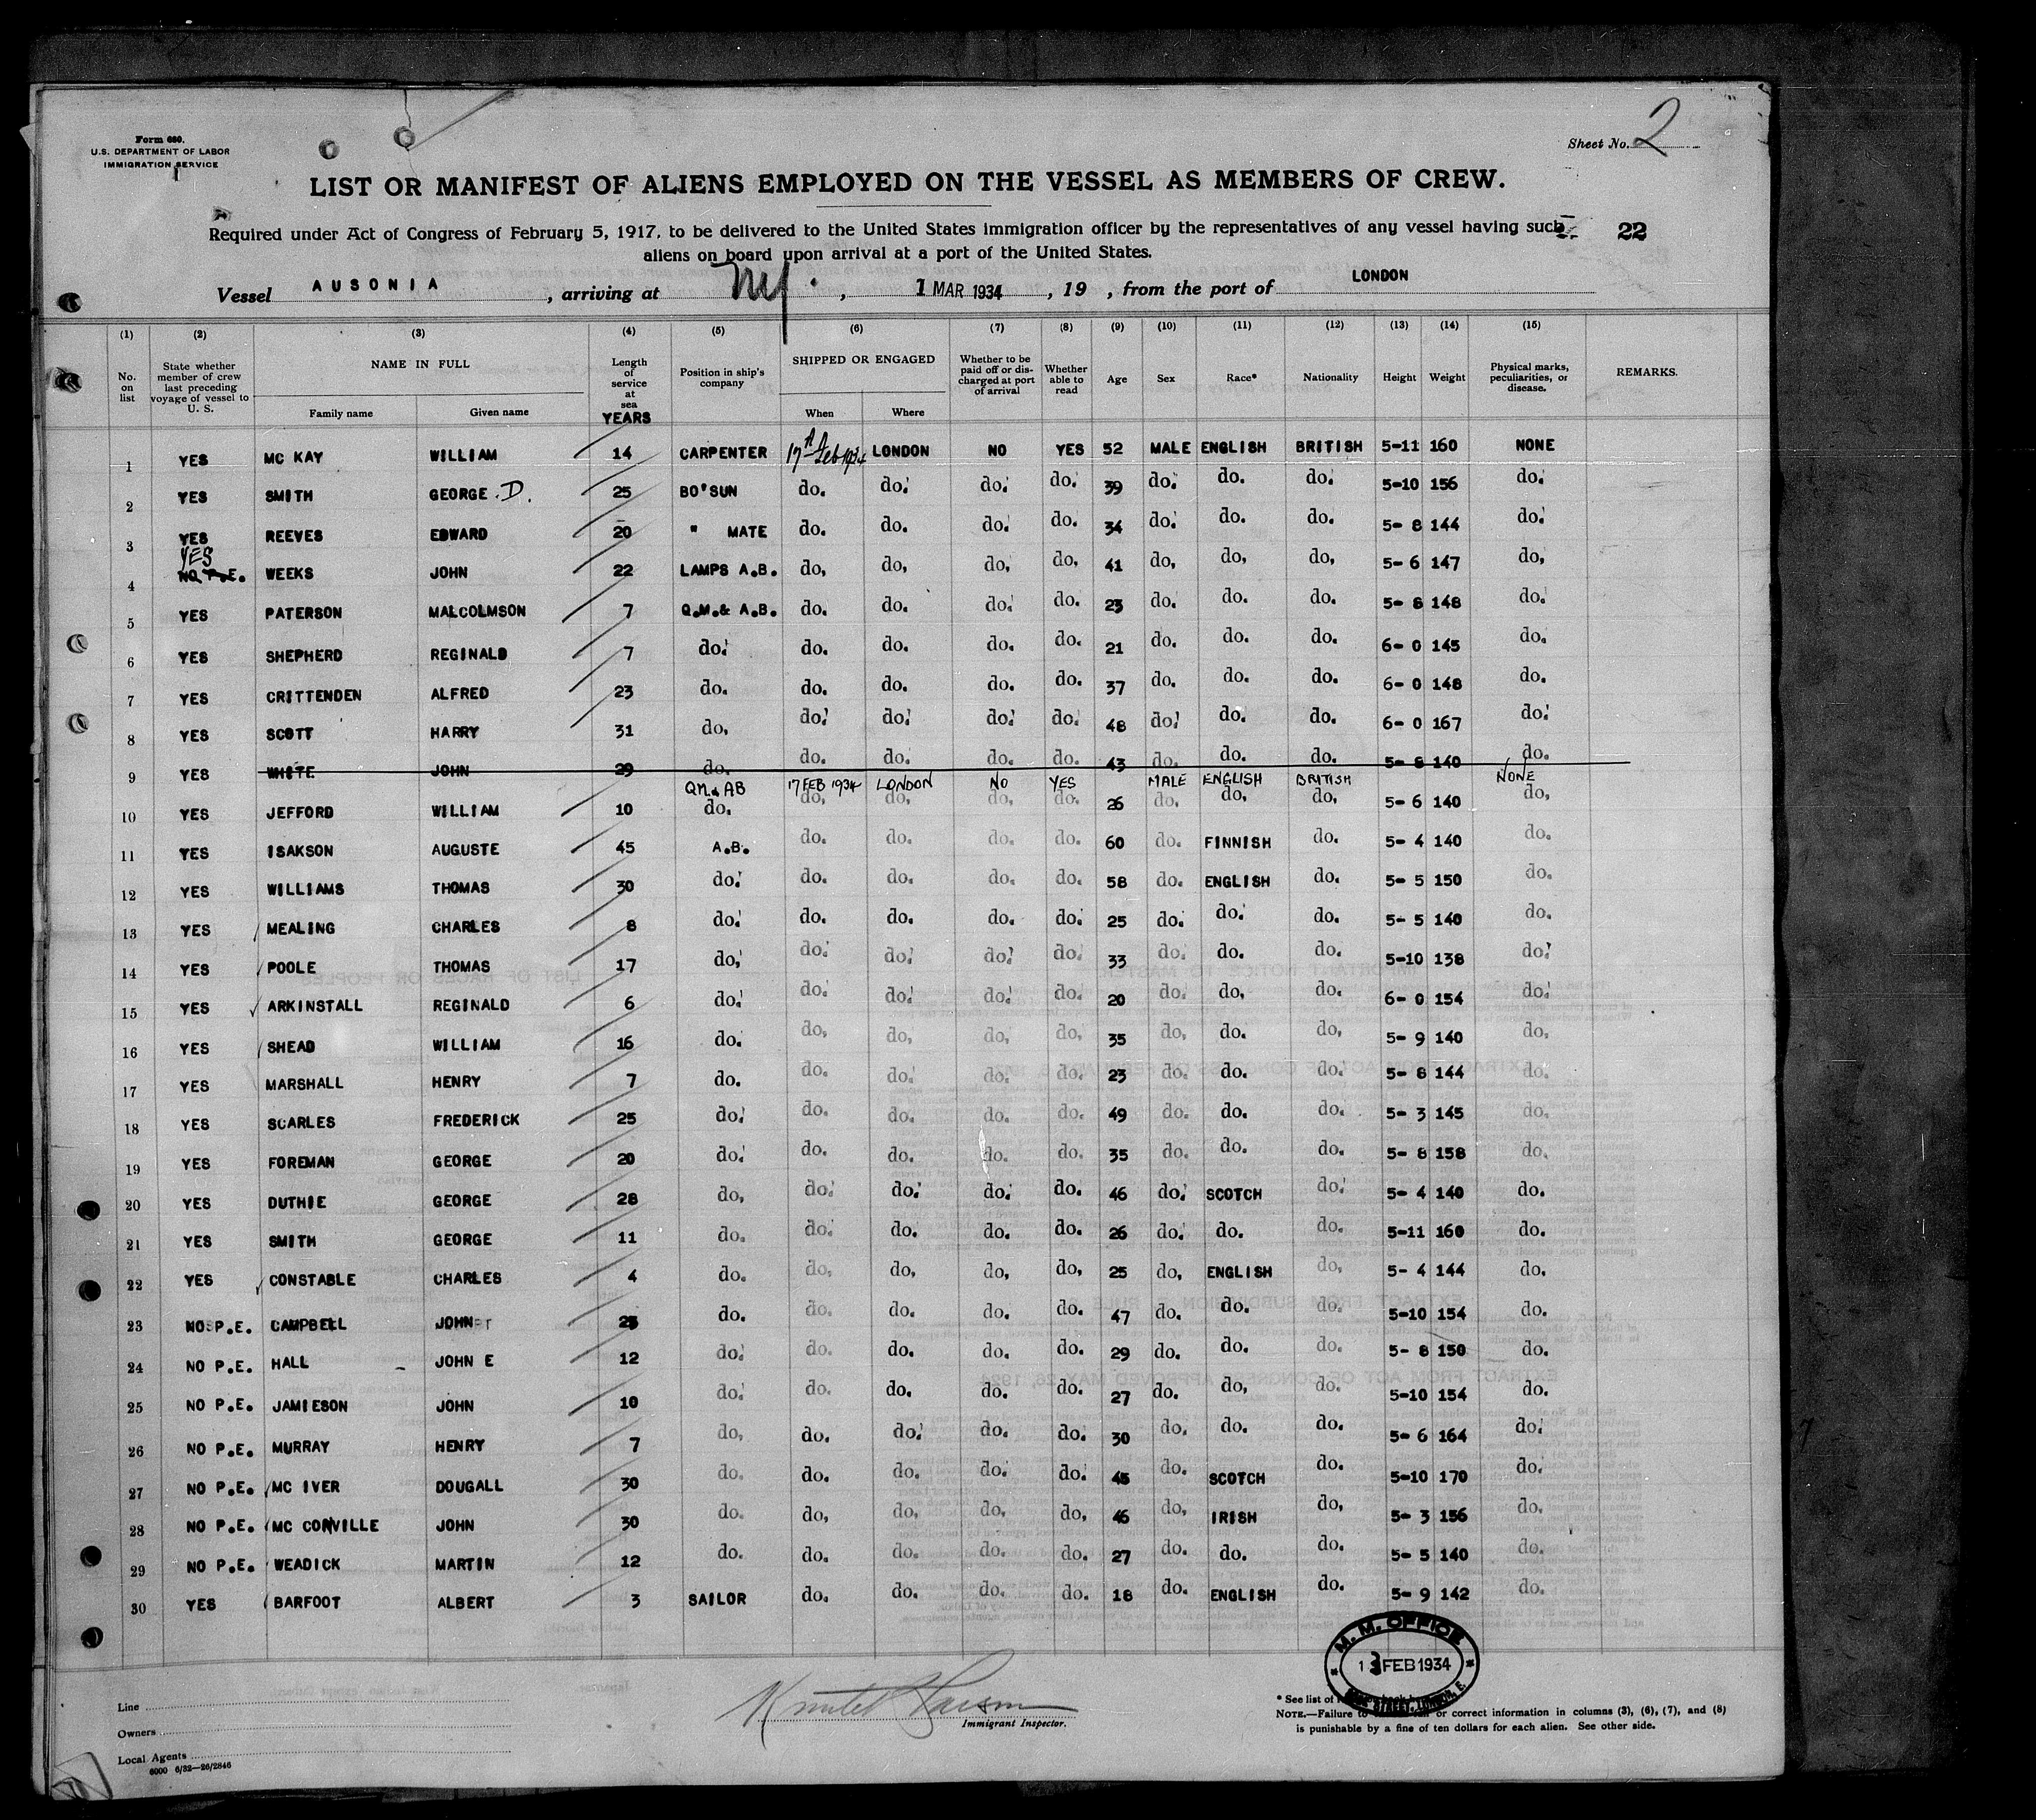 Form 680.
U.S. DEPARTMENT OF LABOR
IMMIGRATION SERVICE
Sheet No. 2
LIST OR MANIFEST OF ALIENS EMPLOYED ON THE VESSEL AS MEMBERS OF CREW.
Required under Act of Congress of February 5, 1917, to be delivered to the United States immigration officer by the representatives of any vessel having such
aliens on board upon arrival at a port of the United States.
22
Vessel AUSONIA, arriving at NY., 1 MAR 1934, 19 , from the port of LONDON
(1) (2) (3) (4) (5) (6) (7) (8) (9) (10) (11) (12) (13) (14) (15)
No. on list State whether member of crew last preceding voyage of vessel to U. S. NAME IN FULL Family name Given name Length of service at sea YEARS Position in ship's company SHIPPED OR ENGAGED When Where Whether to be paid off or discharged at port of arrival Whether able to read Age Sex Race* Nationality Height Weight Physical marks, peculiarities, or disease. REMARKS.
1 YES MC KAY WILLIAM 14 CARPENTER 17th Feb 1934 LONDON NO YES 52 MALE ENGLISH BRITISH 5-11 160 NONE
2 YES SMITH GEORGE. D. 25 BO'SUN do. do. do. do. 39 do. do. do. 5-10 156 do.
3 YES REEVES EDWARD 20 " MATE do. do. do. do. 34 do. do. do. 5- 8 144 do.
YES
4 NO P.E. WEEKS JOHN 22 LAMPS A.B. do, do, do, do, 41 do, do, do, 5- 6 147 do,
5 YES PATERSON MALCOLMSON 7 Q.M.& A.B. do. do. do. do. 23 do. do. do. 5- 8 148 do.
6 YES SHEPHERD REGINALD 7 do. do. do. do. do. 21 do. do. do. 6- 0 145 do.
7 YES CRITTENDEN ALFRED 23 do. do. do. do. do. 37 do. do. do. 6- 0 148 do.
8 YES SCOTT HARRY 31 do, do. do. do. do. 48 do. do. do. 6- 0 167 do.
9 YES WHITE JOHN 29 do. do. do. do. do. 43 do. do. do. 5- 8 140 do.
QM & AB 17 FEB 1934 LONDON NO YES MALE ENGLISH BRITISH NONE
10 YES JEFFORD WILLIAM 10 do. do, do, do, do. 26 do. do, do, 5- 6 140 do,
11 YES ISAKSON AUGUSTE 45 A.B. do. do. do. do. 60 do. FINNISH do. 5- 4 140 do.
12 YES WILLIAMS THOMAS 30 do. do. do. do. do. 58 do. ENGLISH do. 5- 5 150 do.
13 YES MEALING CHARLES 8 do. do. do. do. do. 25 do. do. do. 5- 5 140 do.
14 YES POOLE THOMAS 17 do, do. do. do. do. 33 do. do. do. 5-10 138 do.
15 YES ARKINSTALL REGINALD 6 do. do. do. do. do. 20 do. do, do. 6- 0 154 do.
16 YES SHEAD WILLIAM 16 do. do, do, do, do, 35 do, do. do, 5- 9 140 do,
17 YES MARSHALL HENRY 7 do. do. do. do. do. 23 do. do. do. 5- 8 144 do.
18 YES SCARLES FREDERICK 25 do. do. do. do. do. 49 do. do. do. 5- 3 145 do.
19 YES FOREMAN GEORGE 20 do. do. do. do. do. 35 do. do. do. 5- 8 158 do.
20 YES DUTHIE GEORGE 28 do, do. do. do. do. 46 do. SCOTCH do. 5- 4 140 do.
21 YES SMITH GEORGE 11 do. do. do. do. do. 26 do. do. do. 5-11 160 do.
22 YES CONSTABLE CHARLES 4 do. do, do, do, do, 25 do, ENGLISH do, 5- 4 144 do.
23 NO P.E. CAMPBELL JOHN do. do. do. do. do. 47 do. do. do. 5-10 154 do.
24 NO P.E. HALL JOHN E 12 do. do. do. do. do. 29 do. do. do. 5- 8 150 do.
25 NO P.E. JAMIESON JOHN 10 do. do. do. do. do. 27 do. do, do. 5-10 154 do.
26 NO P.E. MURRAY HENRY 7 do, do. do. do. do. 30 do. do. do. 5- 6 164 do.
27 NO P.E. MC IVER DOUGALL 30 do. do. do. do. do. 45 do. SCOTCH do. 5-10 170 do.
28 NO P.E. MC CONVILLE JOHN 30 do. do, do, do, do, 46 do, IRISH do, 5- 3 156 do.
29 NO P.E. WEADICK MARTIN 12 do. do. do. do. do. 27 do. do. do. 5- 5 140 do.
30 YES BARFOOT ALBERT 3 SAILOR do. do. do. do. 18 do. ENGLISH do. 5- 9 142 do.
M. M. OFFICE
FEB 1934
STREET, LONDON, E.
Line
Owners
Local Agents
6000 6/32—26/2846
Immigrant Inspector.
* See list of
NOTE.—Failure to or correct information in columns (3), (6), (7), and (8)
is punishable by a fine of ten dollars for each alien. See other side.